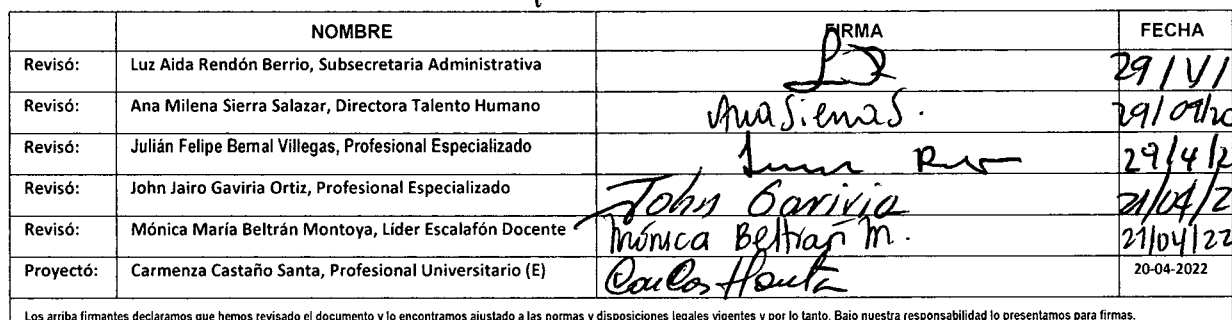 NOMBRE FIRMA FECHA
Revisó: Luz Aida Rendón Berrio, Subsecretaria Administrativa 29/V/
Revisó: Ana Milena Sierra Salazar, Directora Talento Humano Ana Sierra S. 29/04/20
Revisó: Julián Felipe Bernal Villegas, Profesional Especializado 29/4/2
Revisó: John Jairo Gaviria Ortiz, Profesional Especializado John Gaviria 21/04/2
Revisó: Mónica María Beltrán Montoya, Líder Escalafón Docente Mónica Beltrán M. 21/04/22
Proyectó: Carmenza Castaño Santa, Profesional Universitario (E) 20-04-2022
Los arriba firmantes declaramos que hemos revisado el documento y lo encontramos ajustado a las normas y disposiciones legales vigentes y por lo tanto. Bajo nuestra responsabilidad lo presentamos para firmas.